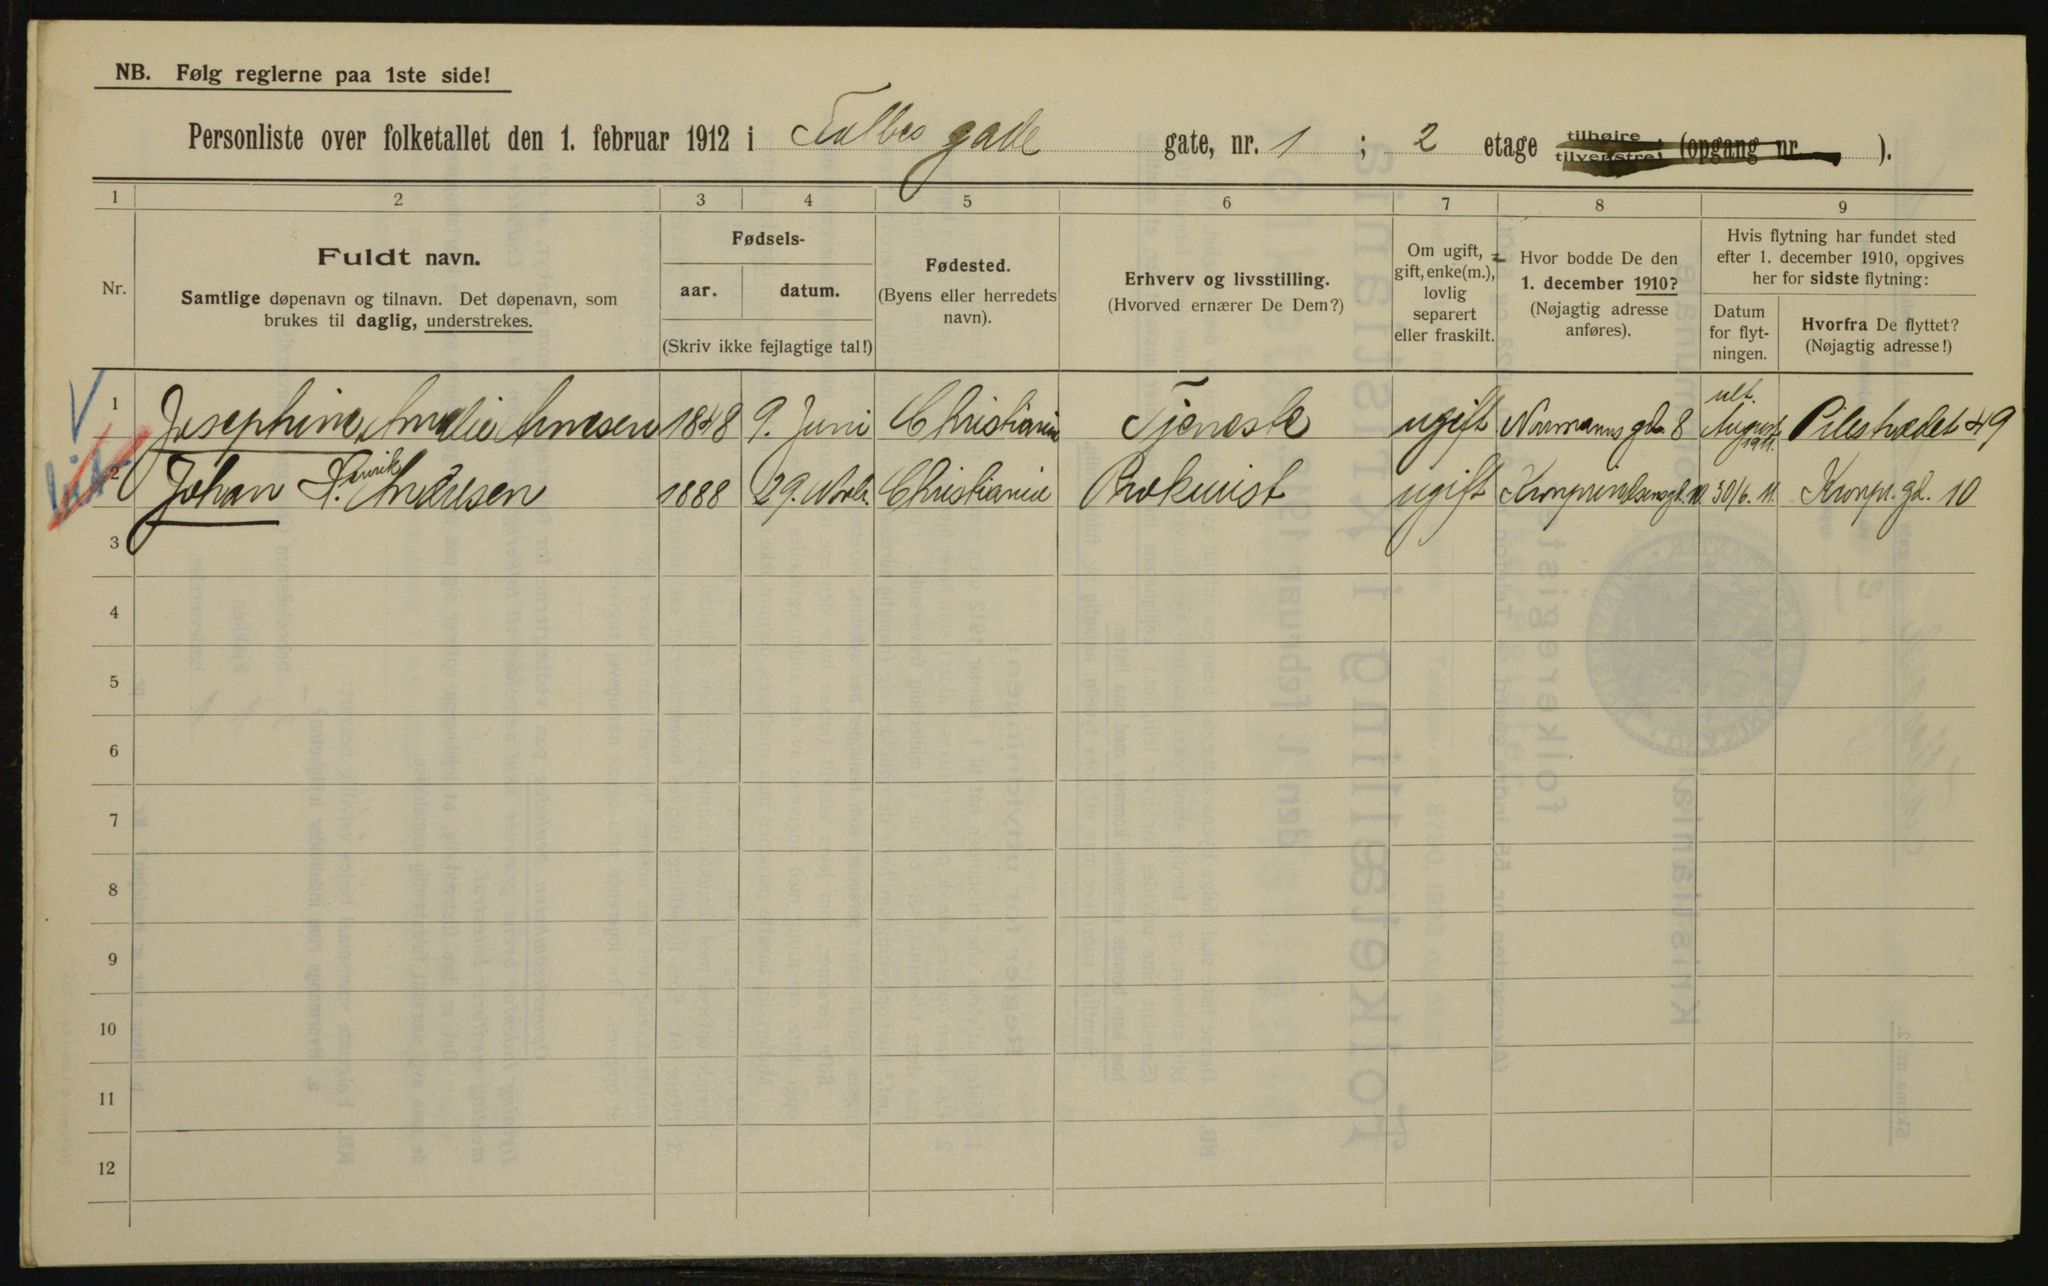 NB. Følg reglerne paa 1ste side!
Personliste over folketallet den 1. februar 1912 i Falbes gade gate, nr. 1 ; 2 etage tilhøire tilvenstre! (opgang nr. ).
1 2 3 4 5 6 7 8 9
Nr.
Fuldt navn.
Samtlige døpenavn og tilnavn. Det døpenavn, som
brukes til daglig, understrekes.
Fødsels-
aar. datum.
(Skriv ikke fejlagtige tal!)
Fødested.
(Byens eller herredets
navn).
Erhverv og livsstilling.
(Hvorved ernærer De Dem?)
Om ugift,
gift, enke(m.),
lovlig
separert
eller fraskilt.
Hvor bodde De den
1. december 1910?
(Nøjagtig adresse
anføres).
Hvis flytning har fundet sted
efter 1. december 1910, opgives
her for sidste flytning:
Datum
for flyt-
ningen.
Hvorfra De flyttet?
(Nøjagtig adresse!)
1 Josephine Amalie Arnesen 1848 9. Juni Christiania Tjeneste ugift Normannsgd. 8 ult. August 1911. Pilestrædet 49
2 Johan Henrik Andresen 1888 29. Christiania Prokurist ugift Kronprindsensgd. 10. 30/6. 11. Kronpr. gd. 10
3
4
5
6
7
8
9
10
11
12